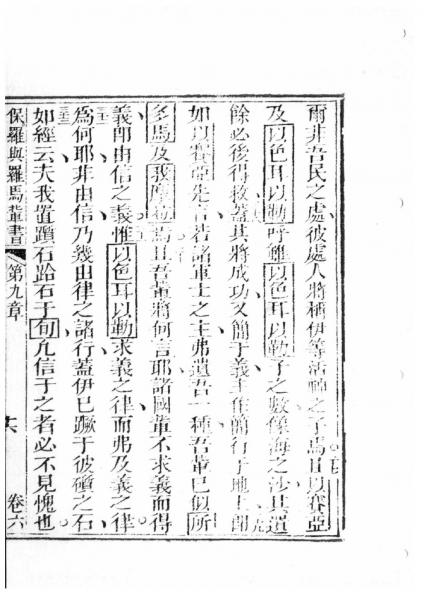 爾非吾民之處彼處人將稱伊等活神之子焉且以賽亞
及以色耳以勒呼雖以色耳以勒子之數像海之沙其遺
餘必後得救蓋其將成功又簡于義主作簡行于地上卽
如以賽亞先言若諸軍士之主弗遺吾一種吾輩已似所
多馬及我摩拉焉且吾輩將何言耶諸國輩不求義而得
義卽由信之義惟以色耳以勒求義之律而弗及義之律
為何耶非由信乃幾由律之諸行蓋伊已蹶于彼礩之石
如經云夫我置躓石跲石于旬凡信于之者必不見愧也
保羅與羅馬輩書 第九章 十六 卷六